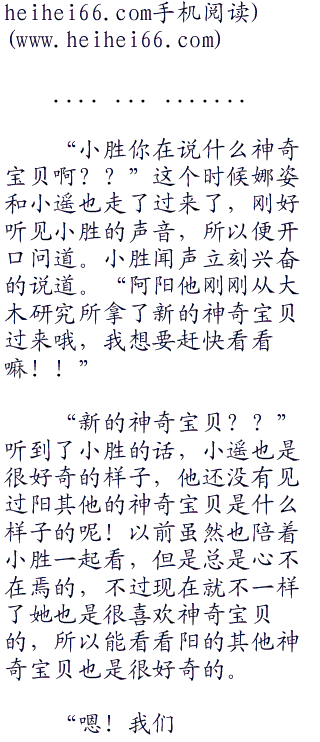 heihei66.com手机阅读)
(www.heihei66.com)
.... ... .......
“小胜你在说什么神奇
宝贝啊？？”这个时候娜姿
和小遥也走了过来了，刚好
听见小胜的声音，所以便开
口问道。小胜闻声立刻兴奋
的说道。“阿阳他刚刚从大
木研究所拿了新的神奇宝贝
过来哦，我想要赶快看看
嘛！！”
“新的神奇宝贝？？”
听到了小胜的话，小遥也是
很好奇的样子，他还没有见
过阳其他的神奇宝贝是什么
样子的呢！以前虽然也陪着
小胜一起看，但是总是心不
在焉的，不过现在就不一样
了她也是很喜欢神奇宝贝
的，所以能看看阳的其他神
奇宝贝也是很好奇的。
“嗯！我们